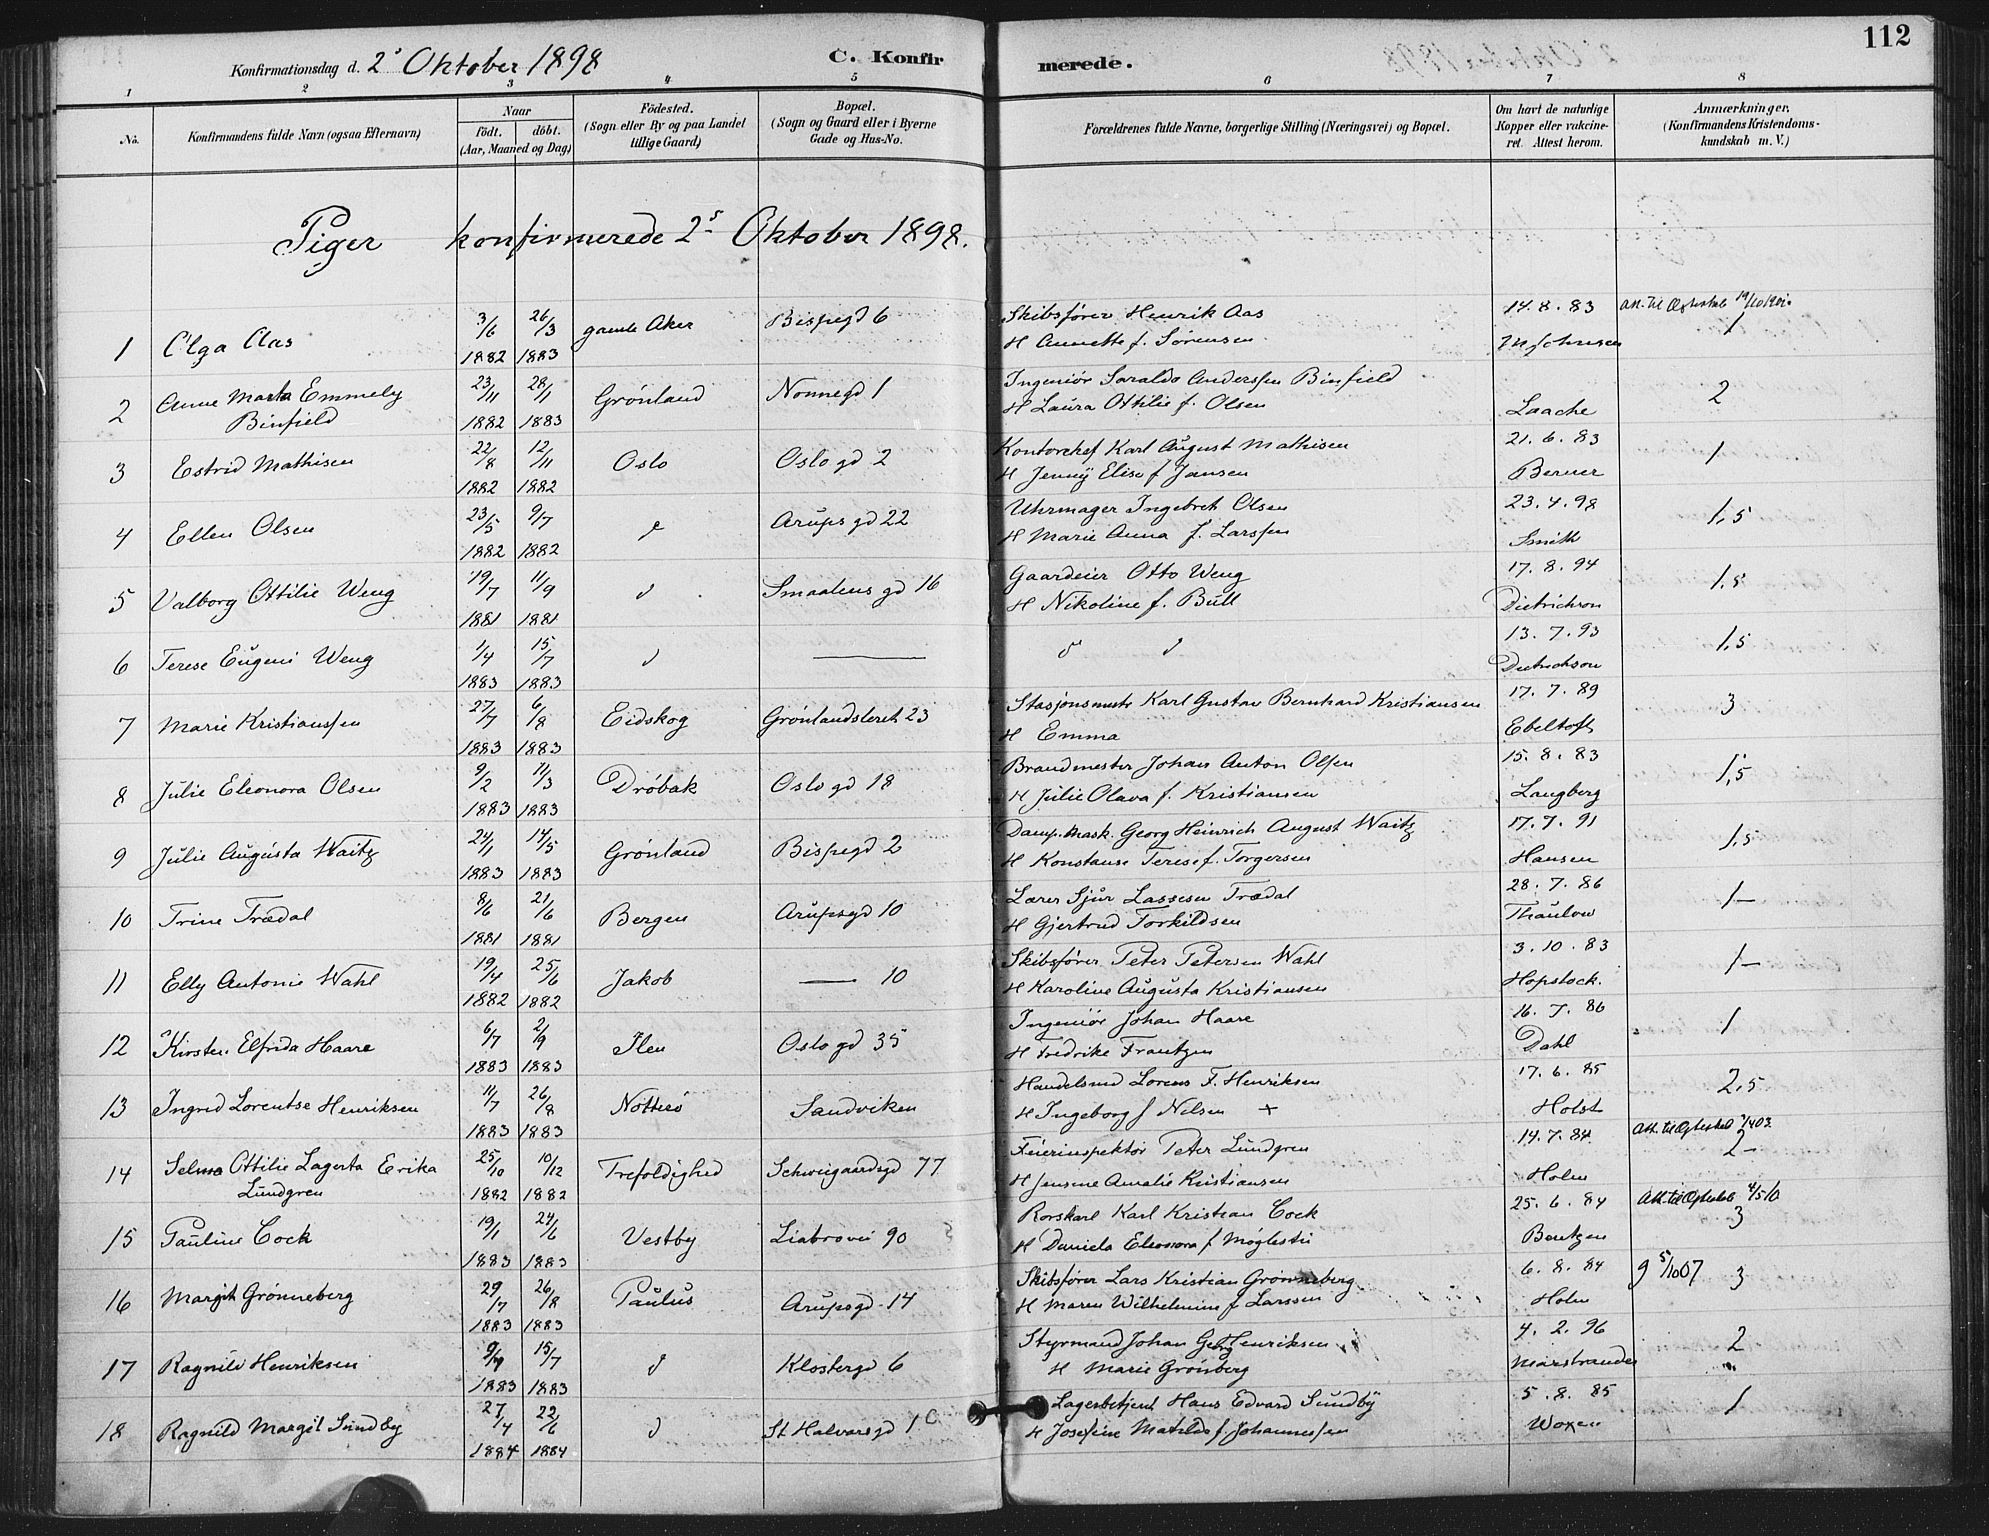 112
Konfirmationsdag d. 2' Oktober 1898 C. Konfirmerede.
1 2 3 4 5 6 7 8
No. Konfirmandens fulde Navn (ogsaa Efternavn) Naar født. døbt. (Aar, Maaned og Dag) Fødested. (Sogn eller By og paa Landet tillige Gaard) Bopæl. (Sogn og Gaard eller i Byerne Gade og Hus-No. Forældrenes fulde Navne, borgerlige Stilling (Næringsvei) og Bopæl. Om havt de naturlige Kopper eller vakcineret. Attest herom. Anmærkninger. (Konfirmandens Kristendomskundskab m. V.)
Piger konfirmerede 2s Oktober 1898.
1 Olga Aas 3/6 1882 26/3 1883 gamle Aker Bispegd 6 Skibsfører Henrik Aas 14.8.83 Att. til Ægteskab 19/10 1901
H Annette f. Sørensen 1
2 Anne Marta Emmely Binfield 23/11 1882 28/1 1883 Grønland Nonnegd 1 Ingeniør Saraldo Anderssen Binfield 2
H Laura Ottilie f. Olsen Laache
3 Estrid Mathisen 22/8 1882 12/11 1882 Oslo Oslogd 2 Kontorchef Karl August Mathisen 21.6.83 1
H Jenny Elise f Jansen Berner
4 Ellen Olsen 23/5 1882 9/7 1882 Arupsgd 22 Uhrmager Ingebret Olsen 23.4.98 1,5
H Marie Anna f. Larssen Smith
5 Valborg Ottilie Weng 19/7 1881 11/9 1881 Smaalensgd 16 Gaardeier Otto Weng 17.8.94 1,5
H Nikoline f. Bull Dietrichson
6 Terese Eugeni Weng 1/4 1883 15/7 1883 — 13.7.93 1,5
Dietrichson
7 Marie Kristianssen 27/7 1883 6/8 1883 Eidskog Grønlandsleret 23 Stasjonsmester Karl Gustav Bernhard Kristiansen 17.7.89 3
H Emma Ebeltoft
8 Julie Eleonora Olsen 9/2 1883 11/3 1883 Drøbak Oslogd 18 Brandmester Johan Anton Olsen 15.8.83 1,5
H Julie Olava f. Kristiansen Langberg
9 Julie Augusta Waitz 24/1 1883 14/5 1883 Grønland Bispegd 2 Damp.mask. Georg Heinrich August Waitz 17.7.91 1,5
H Konstanse Terese f. Torgersen Hansen
10 Trine Trædal 8/6 1881 21/6 1881 Bergen Arupsgd 10 Lærer Sjur Lassesen Trædal 28.7.86 1—
H Gjertrud Torkildsen Thaulow
11 Elly Antonie Wahl 19/4 1882 25/6 1882 Jakob — 10 Skibsfører Peter Petersen Wahl 3.10.83 1—
H Karoline Augusta Kristiansen Hopstock.
12 Kirsten Elfrida Haare 6/7 1883 2/9 1883 Ilen Oslogd 35 Ingeniør Johan Haare 16.7.86 1
H Fredrike Frantzen Dahl
13 Ingrid Lorentse Henriksen 11/7 1883 26/8 1883 Nøtterø Sandviken Handelsmd Lorens F. Henriksen 17.6.85 2,5
H Ingeborg f Nilsen + Holst
14 Selma Ottilie Lagerta Erika Lundgren 25/10 1882 10/12 1882 Trefoldighed Schweigaardsgd 77 Feierinspektør Peter Lundgren 14.7.84 Att. til Ægteskab 1/4 03 2—
H Jensine Amalie Kristiansen Holm
15 Pauline Cock 19/1 1883 24/6 1883 Vestby Liabrovei 90 Rorskarl Karl Kristian Cock 25.6.84 Att. til Ægteskab 4/5 10 3
H Daniela Eleonora f Møglestu Bentzen
16 Margit Grønneberg 29/7 1883 26/8 1883 Paulus Arupsgd 14 Skibsfører Lars Kristian Grønneberg 6.8.84 9 5/10 07 3
H Maren Wilhelmine f Larssen Holm
17 Ragnild Henriksen 9/4 1883 15/7 1883 Klostergd 6 Styrmand Johan Georg Henriksen 4.2.96 2
H Marie Grønberg Marstrander
18 Ragnild Margit Sundby 27/4 1884 22/6 1884 St. Halvarsgd 1 C Lagerbetjent Hans Edvard Sundby 5.8.85 1
H Josefine Matilde f. Johannessen Woxen